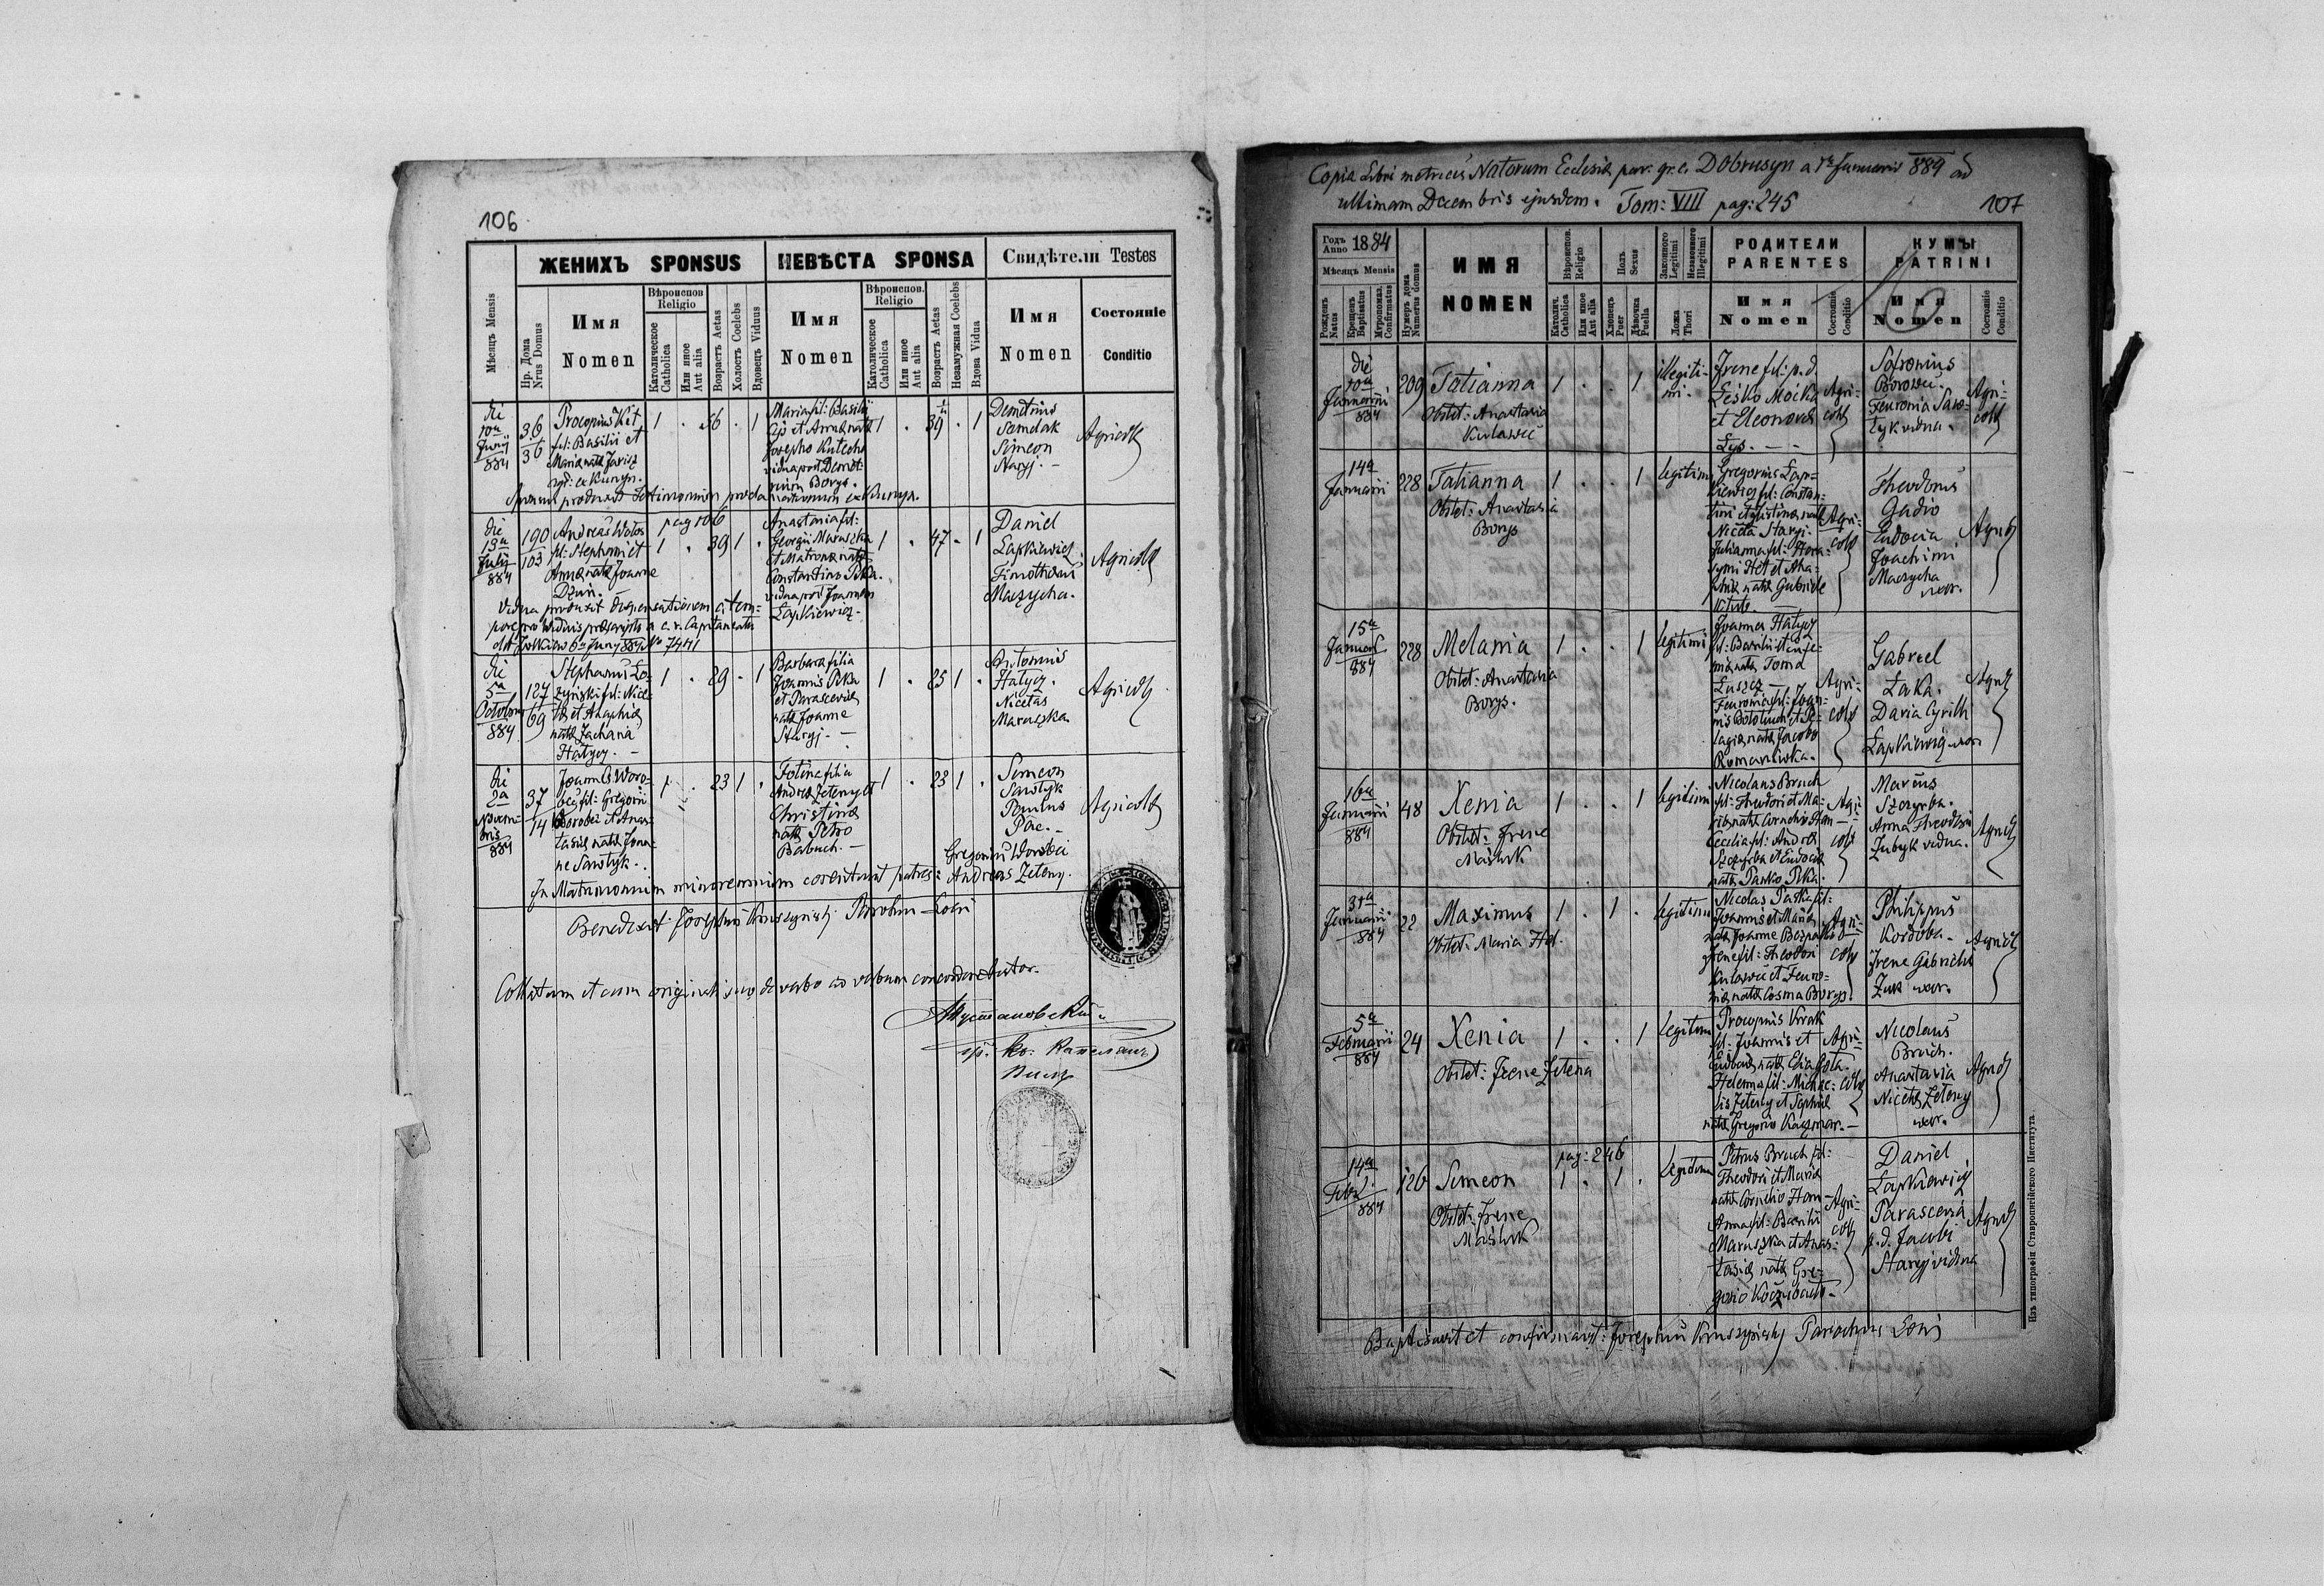 106
ЖЕНИХЪ SPONSUS
НЕВѢСТА SPONSA
Свидѣтели Testes
Мѣсяцъ Mensis
Нр. Дома
Nrus Domus
Имя
Nomen
Вѣроиспов
Religio
Католическое
Catholica
Или иное
Aut alia
Возрастъ Aetas
Холостъ Coelebs
Вдовецъ Viduus
Имя
Nomen
Вѣроиспов.
Religio
Католическое
Catholica
Или иное
Aut alia
Возрастъ Aetas
Незамужная Coelebs
Вдова Vidua
Имя
Nomen
Состояніе
Conditio
die
10a
Junij
884
36
36
Procopius Kit
fil: Basilii et
Maria nata
1 . 56 . 1
Maria fil: Basilii
Josepho
vidua post Demet:
rium Borys.
1 . 39 . 1
Demetrius
Semdak
Simeon
Staryj. -
Agricola
pag 106
die
13a
Julij
884
190
103
Andreas Wolos
fil: Stephani et
Anna nata Joanne
Dziur. -
1 . 39 1 .
Anastasia fil:
Georgii Maruszka
et Matrona nata
Constantino Pika.
vidua post Joannem
Łapkiewicz. -
1 . 47 . 1
Daniel
Łapkiewicz
Timotheus
Maczycha.
Agricola
Vidua produxit dispensationem a tem=
pore pro viduis praescripto a c. r. Capitaneatu
dtt Żołkiew 6a Junij 884 No 7411
die
5a
Octobris
884
127
69
Stephanus Ło-
zynski fil: Nice-
tae et Agaphia
nata Zacharia
Hałycz. -
1 . 29 . 1
Barbara filia
Joannis Pika
et Parascevia
nata Joanne
Staryj. -
1 . 25 1 .
Antonius
Hałycz.
Nicetas
Maruszka.
Agricola
die
2a
Novem-
bris
884
37
14
Joannes Woro-
bec fil: Gregorii
Worobec et Anas-
tasia nata Joan-
ne Sawłyk. -
1 . 23 1 .
Fotina filia
Andrea Zeteny et
Christina
nata Petro
Babuch. -
1 . 23 1 .
Simeon
Sawłyk
Paulus
Pac. -
Agricola
In Matrimonium minorennium consentiunt patres: Gregorius Worobec
Andreas Zeteny.
Benedixit Josephus Kruszynskij Parochus Loci
Collatum et cum originali suo de verbo ad verbum concordare
гр. ко: Капеланъ
Copia Libri metrices Natorum Ecclesia par: gr. c. Dobrusyn a 1a Januarii 884 ad
ultimam Decembris ejusdem. Tom: VIII pag: 245
107
Годъ
Anno 1884
Мѣсяцъ Mensis
Рожденъ
Natus
Крещенъ
Baptisatus
Мѵропомаз.
Confirmatus
Нумеръ дома
Numerus domus
ИМЯ
NOMEN
Вѣроиспов.
Religio
Католич.
Catholica
Или иное
Aut alia
Полъ
Sexus
Хлопецъ
Puer
Дѣвочка
Puella
Законного
Legitimi
Незаконного
Illegitimi
Ложа
Thori
РОДИТЕЛИ
PARENTES
Имя
Nomen
Состояніе
Conditio
КУМЫ
PATRINI
Имя
Nomen
Состояніе
Conditio
die
10a
Januarii
884
209
Tatianna
Obstet: Anastasia
Kulawec
1 . . 1
illegiti-
mi.
Irene fil: p. d.
Lesko Mocka
et Eleonora
Łys. - -
Agri-
cola
Sofronius
Borowec.
Feuronia
vidua.
Agri-
cola
14a
Januarii
228
Tatianna
Obstet: Anastasia
Borys
1 . . 1
legitimi
Gregorius Łap-
kiewicz fil: Constan-
Niceta Staryj.
Julianna fil: Hiero=
nata Gabriele
Agri-
cola
Theodorus
Gadio
Eudocia
Joachimi
Maczycha
uxor.
Agricola
15a
Januarii
884
228
Melania
Obstet: Anastasia
Borys.
1 . . 1
legitimi
Joannes Hałycz
fil: Basilii et Eufe-
mia nata Toma
Łuszcz -
Feuronia fil: Joan-
lagia nata Jacobo
Romaniwka.
Agri-
cola
Gabriel
Łaka.
Daria Cyrilli
Łapkiewicz uxor
Agricola
16a
Januarii
884
48
Xenia
Obstet: Irene
Masluk
1 . . 1
legitimi
Nicolaus Bruch
fil: Theodori et Ma-
ria nata Cornelio Ham -
Cecilia fil: Andrea
Szczyrba et Eudocia
nata Panko Pika.
Agri-
cola
Marcus
Szczyrba.
Anna Theodori
Zubyk vidua.
Agricola
31a
Januarii
884
22
Maximus
Obstet: Maria Het.
1 . 1 .
legitimi
Nicolas Paska fil:
Joannis et Maria
nata Joanne
Irene fil: Theodori
Kulawec et Feuro-
nia nata Cosma Borys.
Agri-
cola
Philippus
Kordoba.
Irene Gabrielis
Żuk uxor.
Agricola
5a
Februarii
884
24
Xenia
Obstet: Irene Zetena
1 . . 1
legitimi
Procopius
fil: Joannis et
nata Elia
Helenna fil: Michae=
lis Zeteny et Sophia
nata Gregorio Kaczmar. -
Agri-
cola
Nicolaus
Bruch.
Anastasia
Niceta Zeteny
uxor.
Agricola
pag: 246
14a
Febr.
884
126
Simeon
Obstet: Irene
Masluk
1 . 1 .
legitimi
Petrus Bruch fil:
Theodori et Maria
nata Cornelio Ham -
Anna fil: Basilii
Maruszka et Anas-
tasia nata Gre-
gorio
Agri-
cola
Daniel
Łapkiewicz
Parascevia
p. d. Jacobi
Staryj vidua
Agricola
Baptisavit et confirmavit: Josephus Kruszynskij Parochus Loci
Изъ типографіи Ставропигійского Института.